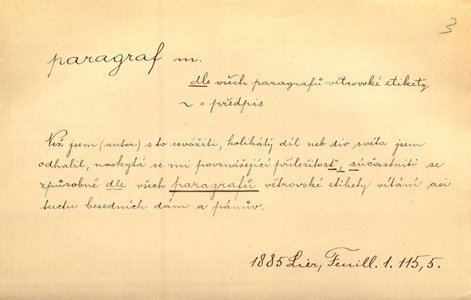 3
paragraf m.
dle všech paragrafů větrovské etikety
~ = předpis
Než jsem (autor) s to uvážiti, kolikátý díl neb div světa jsem
odhalil, naskytá se mi povznášející příležitosť, súčastniti se
způsobně dle všech paragrafů větrovské etikety vítání asi
tuctu besedních dam a pánův.
1885 Lier, Feuill. 1. 115, 5.